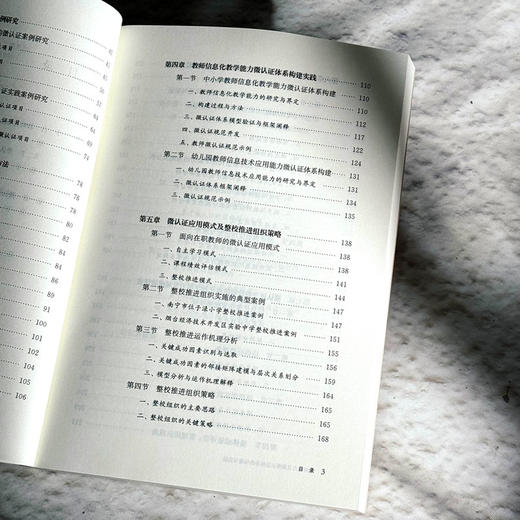 例研究
微认证案例研究 61
证项目 61
65
68
证实践案例研究 74
认证项目 74
认证项目 76
认证项目 78
80
方法 82
82
82
84
86
87
89
92
95
99
102
106
第四章 教师信息化教学能力微认证体系构建实践 110
第一节 中小学教师信息化教学能力微认证体系构建 110
一、教师信息化教学能力的研究与界定 110
二、构建过程与方法 112
三、微认证体系模型验证与框架阐释 117
四、微认证规范开发 122
五、教师微认证规范示例 124
第二节 幼儿园教师信息技术应用能力微认证体系构建 131
一、幼儿园教师信息技术应用能力的研究与界定 131
二、微认证体系框架阐释 134
三、微认证规范示例 135
第五章 微认证应用模式及整校推进组织策略 138
第一节 面向在职教师的微认证应用模式 138
一、自主学习模式
二、课程绩效评估模式
三、整校推进模式
第二节 整校推进组织实施的典型案例 147
一、南宁市位子渌小学整校推进案例 147
二、烟台经济技术开发区实验中学整校推进案例 151
第三节 整校推进运作机理分析
一、关键成功因素识别与选取
二、关键成功因素的邻接矩阵建模与层次关系划分
三、模型分析与运作机理解释 164
第四节 整校推进组织策略 165
一、整校组织的主要思路 165
二、整校组织的关键策略 168
目 录 3